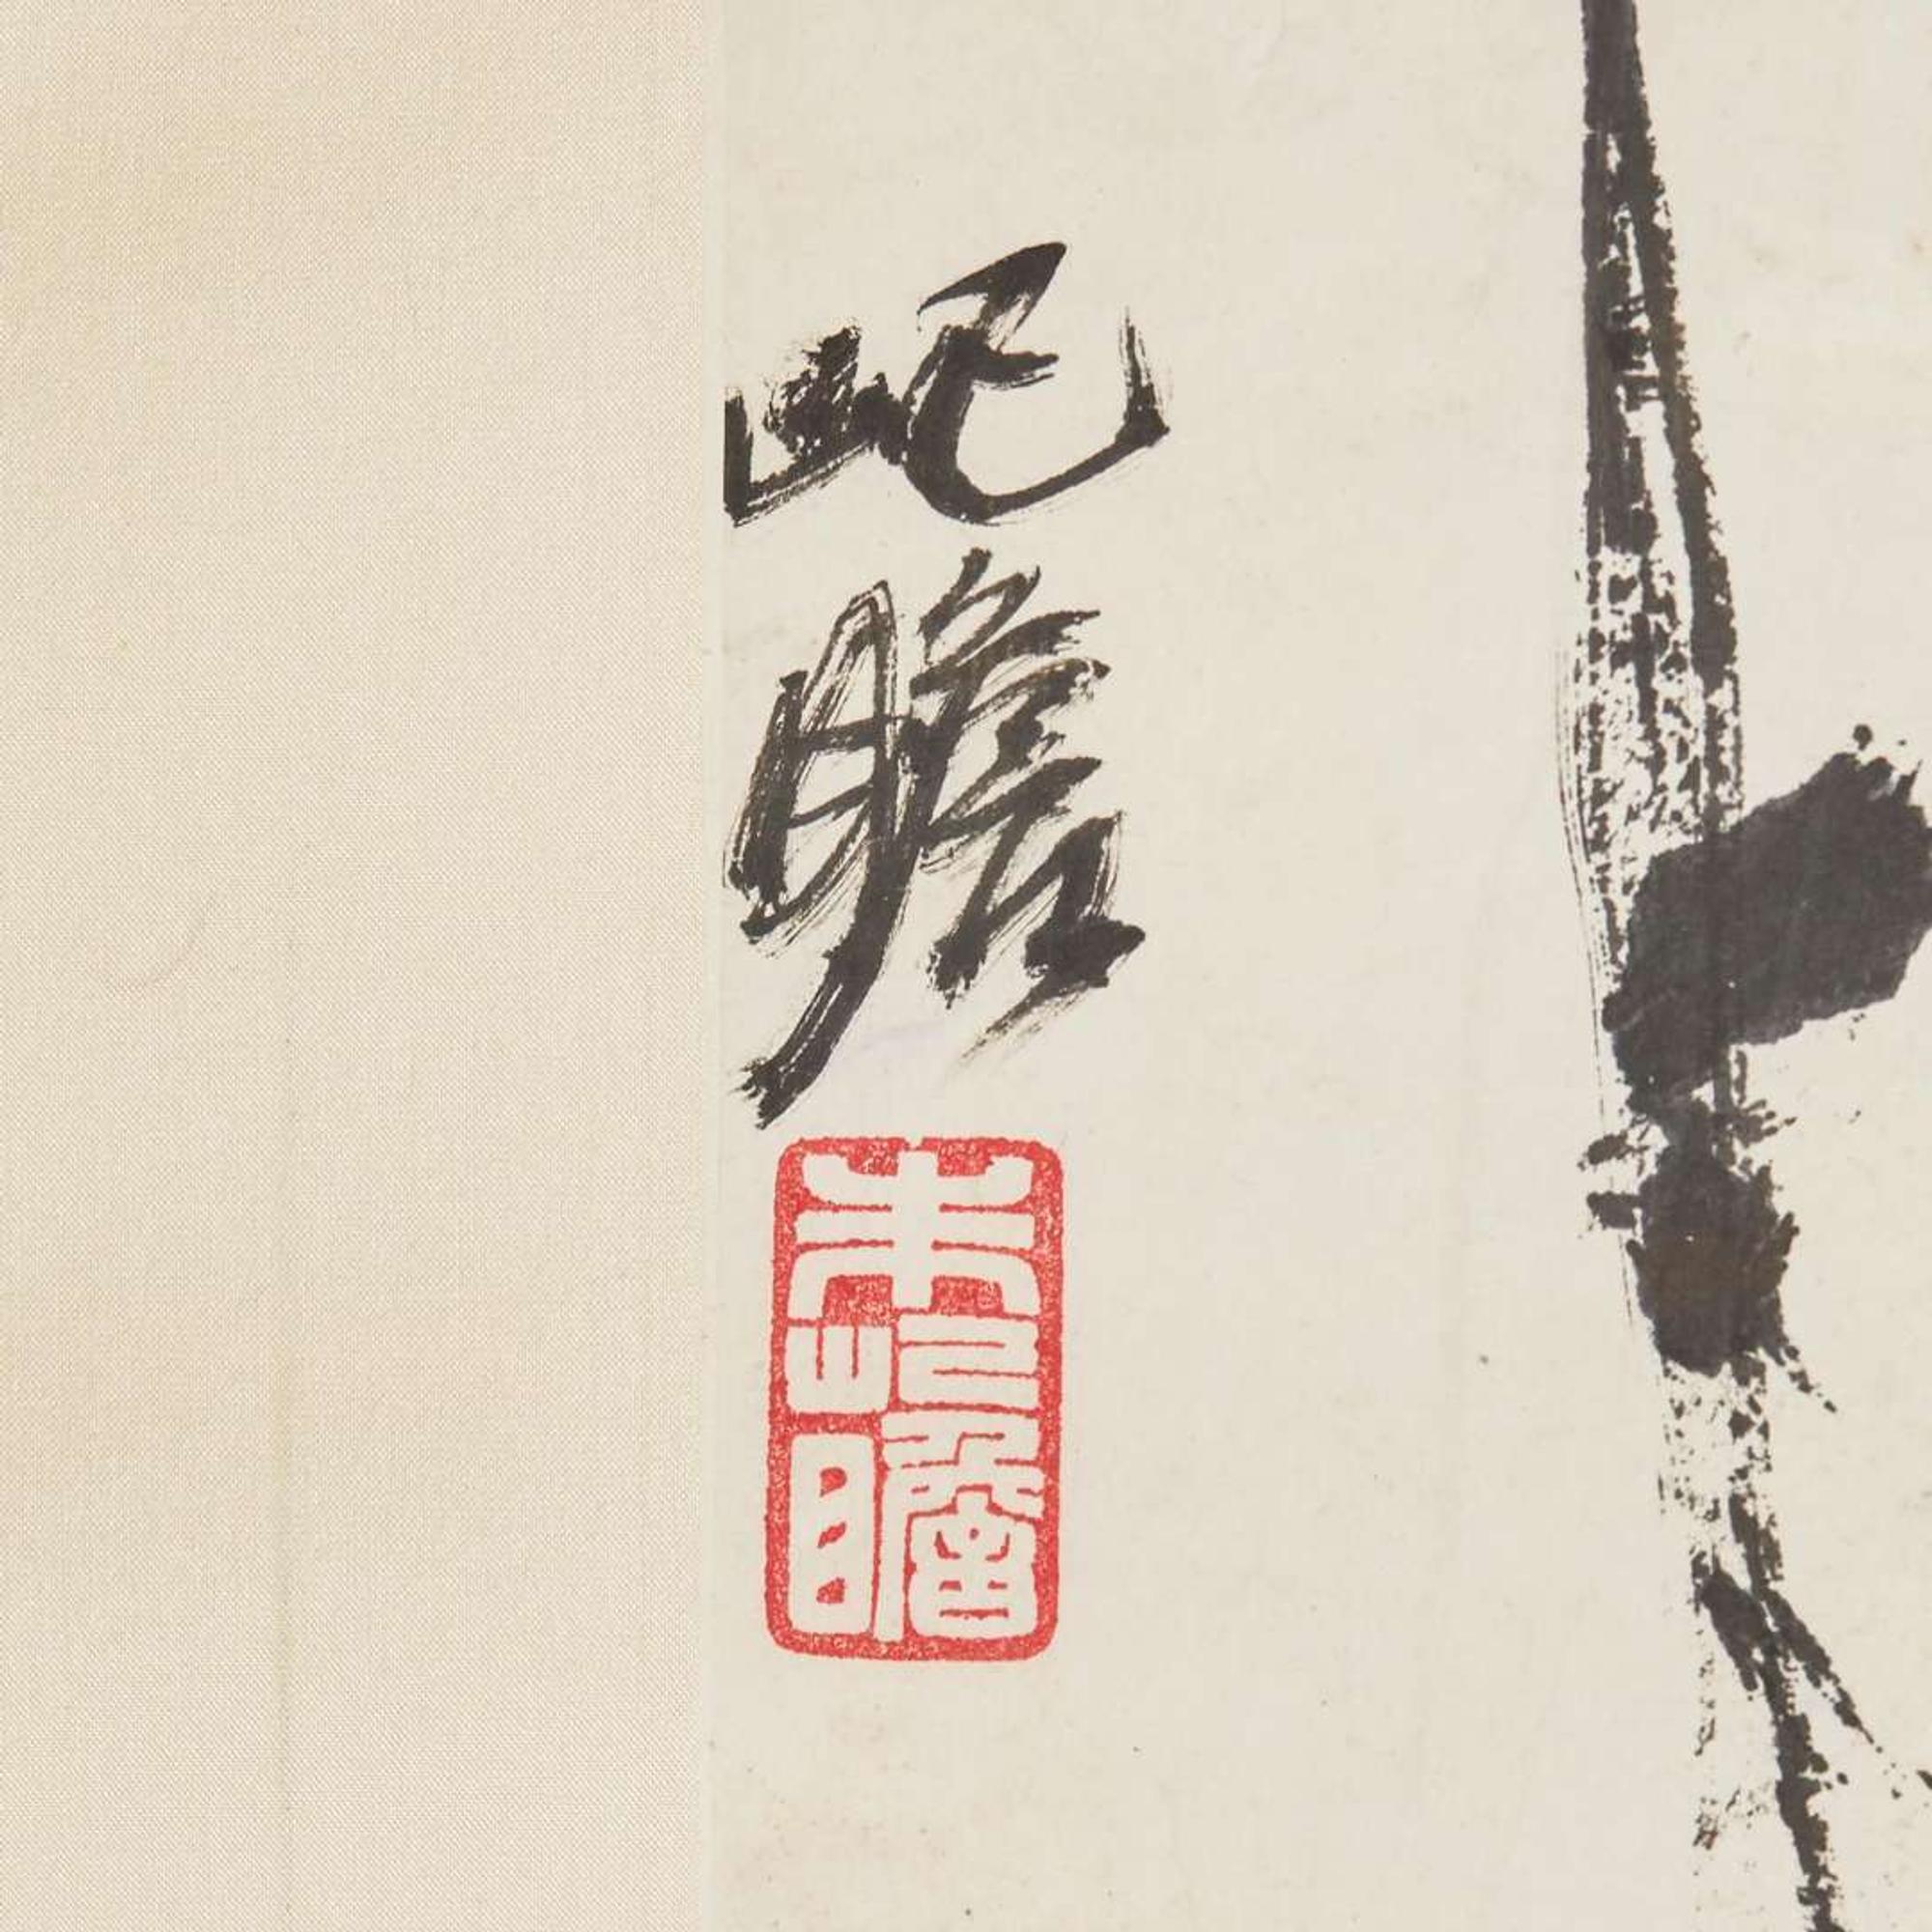 屺瞻
朱屺瞻